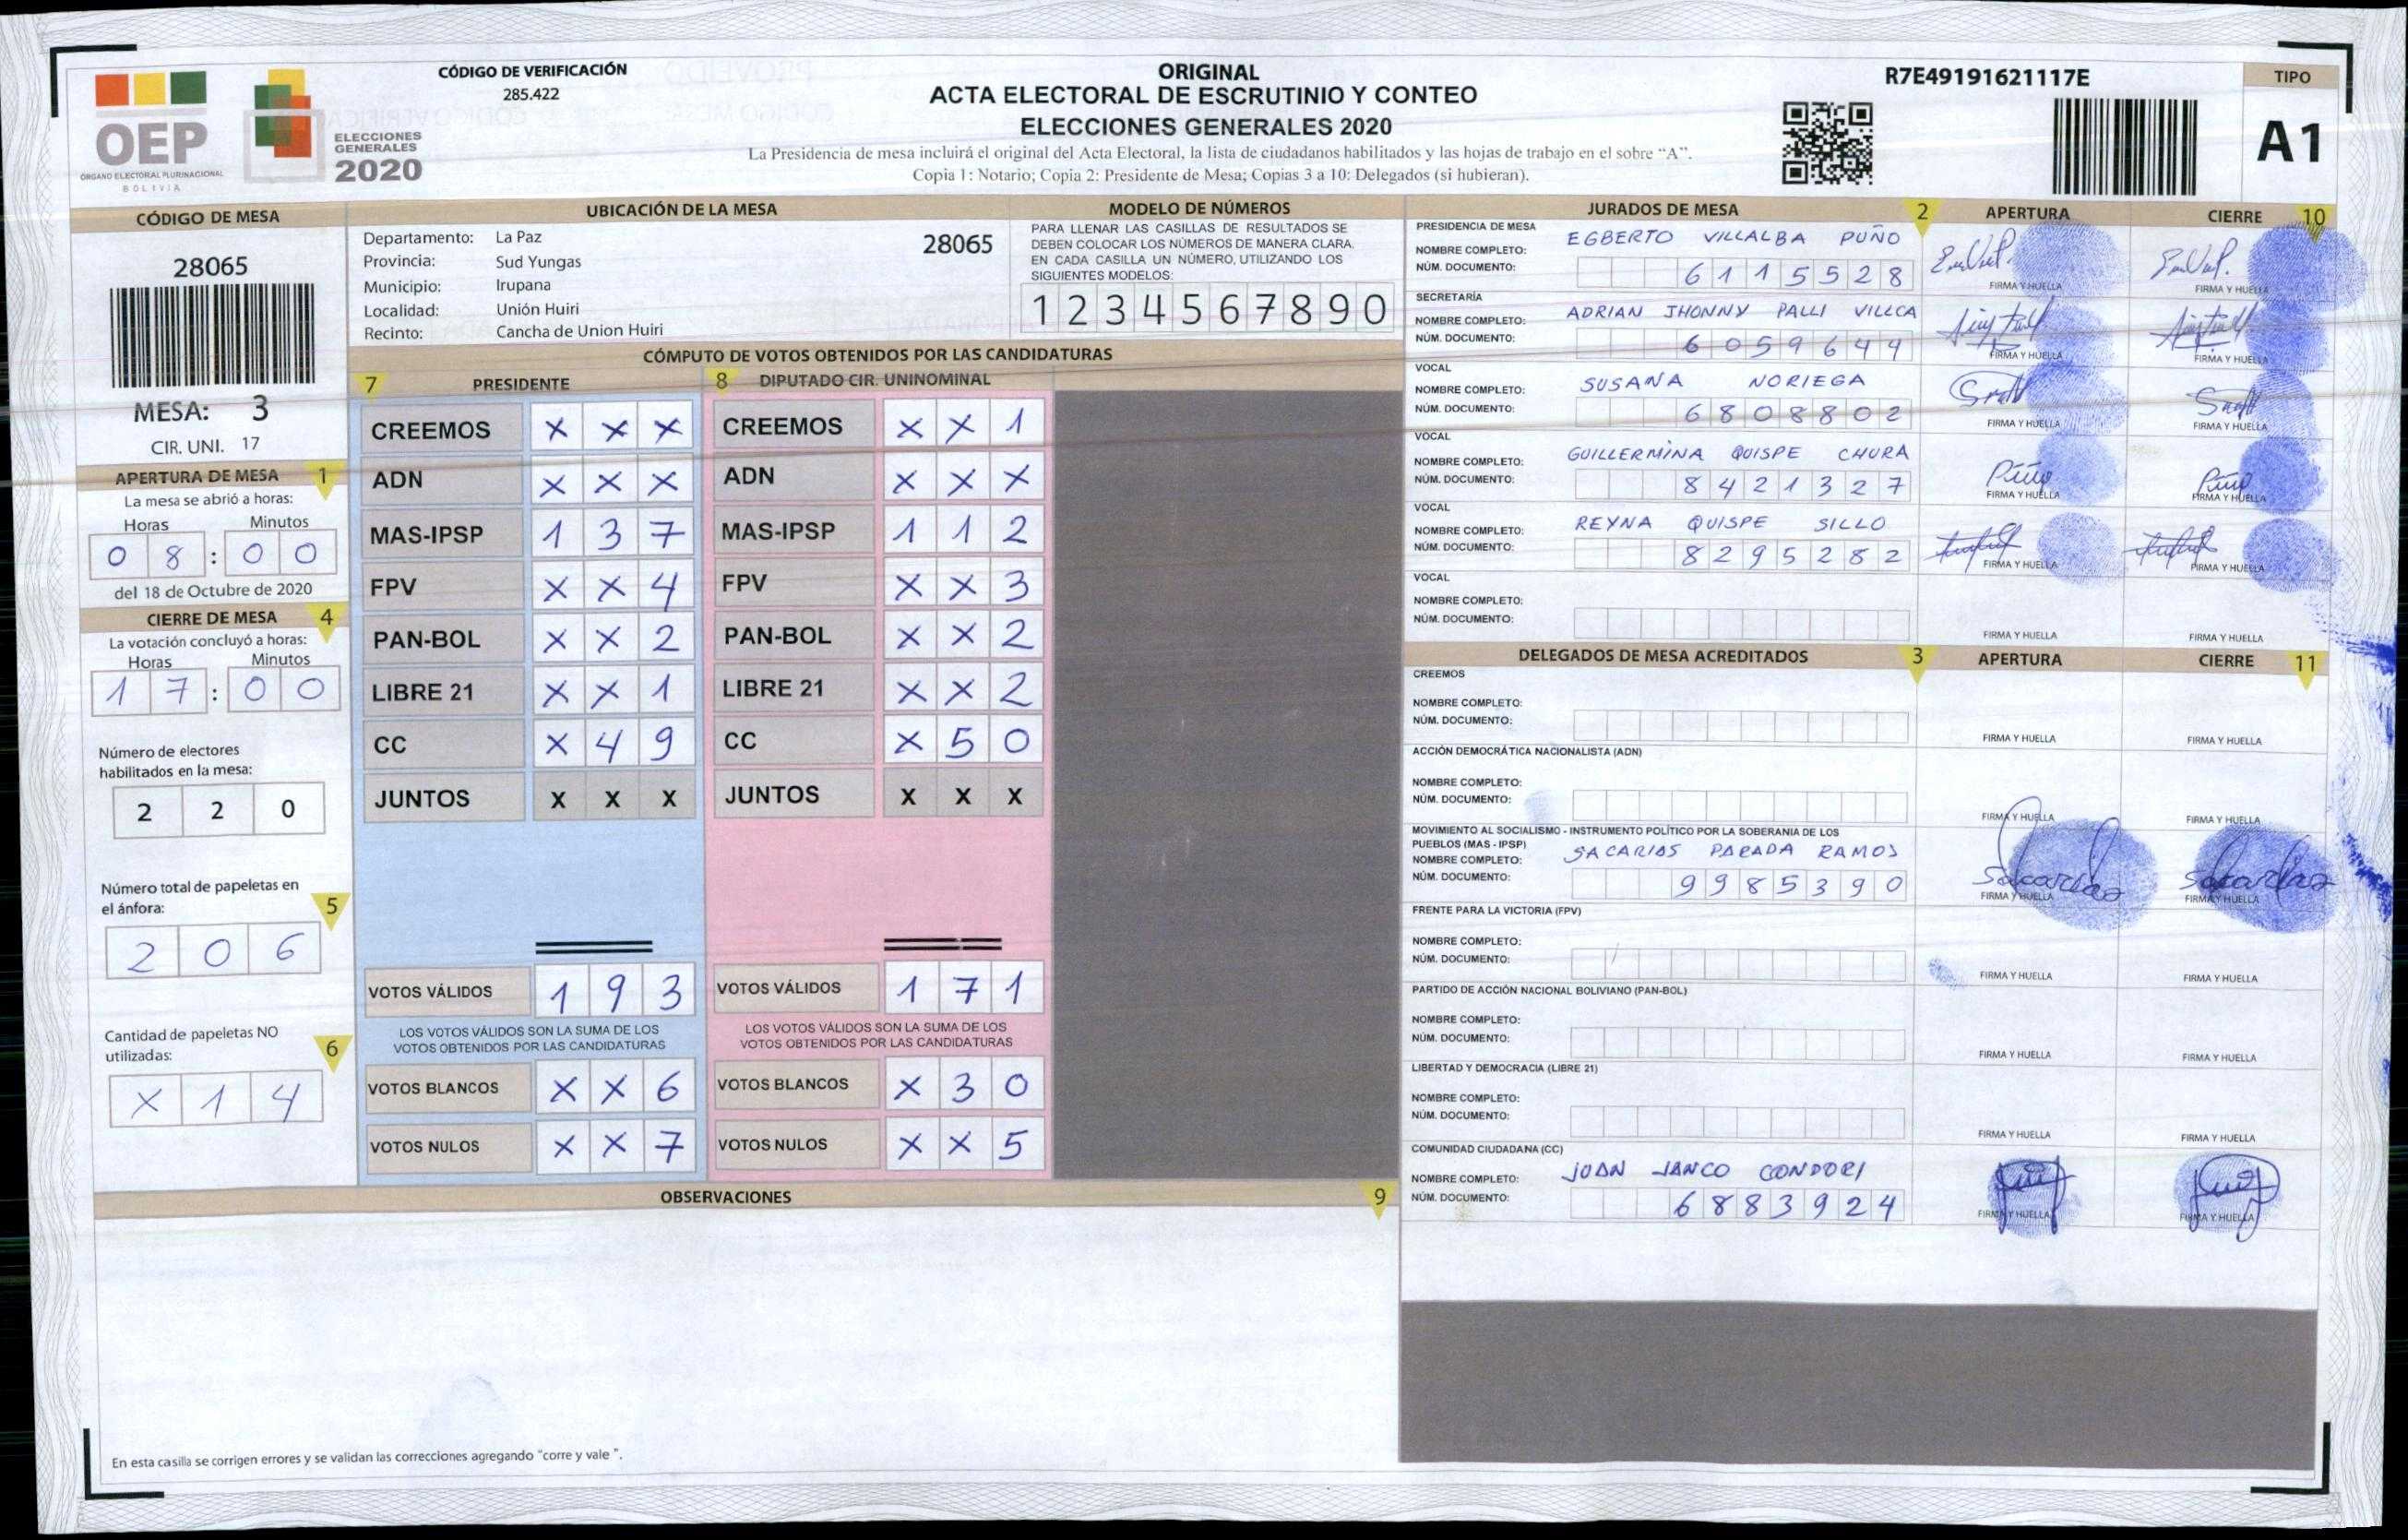 CÓDIGO DE VERIFICACIÓN
285.422
ORIGINAL
ACTA ELECTORAL DE ESCRUTINIO Y CONTEO
ELECCIONES GENERALES 2020
La Presidencia de mesa incluirá el original del Acta Electoral, la lista de ciudadanos habilitados y las hojas de trabajo en el sobre “A”.
Copia 1: Notario; Copia 2: Presidente de Mesa; Copias 3 a 10: Delegados (si hubieran).
R7E49191621117E
TIPO
A1
OEP
ÓRGANO ELECTORAL PLURINACIONAL
BOLIVIA
ELECCIONES
GENERALES
2020
CÓDIGO DE MESA
28065
MESA: 3
CIR. UNI. 17
APERTURA DE MESA 1
La mesa se abrió a horas:
Horas Minutos
0 8 : 0 0
del 18 de Octubre de 2020
CIERRE DE MESA 4
La votación concluyó a horas:
Horas Minutos
1 7 : 0 0
Número de electores
habilitados en la mesa:
2 2 0
Número total de papeletas en
el ánfora: 5
2 0 6
Cantidad de papeletas NO
utilizadas: 6
X 1 4
UBICACIÓN DE LA MESA
Departamento: La Paz 28065
Provincia: Sud Yungas
Municipio: Irupana
Localidad: Unión Huiri
Recinto: Cancha de Union Huiri
MODELO DE NÚMEROS
PARA LLENAR LAS CASILLAS DE RESULTADOS SE
DEBEN COLOCAR LOS NÚMEROS DE MANERA CLARA.
EN CADA CASILLA UN NÚMERO, UTILIZANDO LOS
SIGUIENTES MODELOS:
1 2 3 4 5 6 7 8 9 0
CÓMPUTO DE VOTOS OBTENIDOS POR LAS CANDIDATURAS
7 PRESIDENTE
CREEMOS X X X
ADN X X X
MAS-IPSP 1 3 7
FPV X X 4
PAN-BOL X X 2
LIBRE 21 X X 1
CC X 4 9
JUNTOS X X X
VOTOS VÁLIDOS 1 9 3
LOS VOTOS VÁLIDOS SON LA SUMA DE LOS
VOTOS OBTENIDOS POR LAS CANDIDATURAS
VOTOS BLANCOS X X 6
VOTOS NULOS X X 7
8 DIPUTADO CIR. UNINOMINAL
CREEMOS X X 1
ADN X X X
MAS-IPSP 1 1 2
FPV X X 3
PAN-BOL X X 2
LIBRE 21 X X 2
CC X 5 0
JUNTOS X X X
VOTOS VÁLIDOS 1 7 1
LOS VOTOS VÁLIDOS SON LA SUMA DE LOS
VOTOS OBTENIDOS POR LAS CANDIDATURAS
VOTOS BLANCOS X 3 0
VOTOS NULOS X X 5
OBSERVACIONES 9
En esta casilla se corrigen errores y se validan las correcciones agregando "corre y vale ".
JURADOS DE MESA 2 APERTURA CIERRE 10
PRESIDENCIA DE MESA
NOMBRE COMPLETO: EGBERTO VILLALBA PUÑO
NÚM. DOCUMENTO: 6 1 1 5 5 2 8
FIRMA Y HUELLA FIRMA Y HUELLA
SECRETARÍA
NOMBRE COMPLETO: ADRIAN JHONNY PALLI VILLCA
NÚM. DOCUMENTO: 6 0 5 9 6 4 9
FIRMA Y HUELLA FIRMA Y HUELLA
VOCAL
NOMBRE COMPLETO: SUSANA NORIEGA
NÚM. DOCUMENTO: 6 8 0 8 8 0 2
FIRMA Y HUELLA FIRMA Y HUELLA
VOCAL
NOMBRE COMPLETO: GUILLERMINA QUISPE CHURA
NÚM. DOCUMENTO: 8 4 2 1 3 2 7
FIRMA Y HUELLA FIRMA Y HUELLA
VOCAL
NOMBRE COMPLETO: REYNA QUISPE SILLO
NÚM. DOCUMENTO: 8 2 9 5 2 8 2
FIRMA Y HUELLA FIRMA Y HUELLA
VOCAL
NOMBRE COMPLETO:
NÚM. DOCUMENTO:
FIRMA Y HUELLA FIRMA Y HUELLA
DELEGADOS DE MESA ACREDITADOS 3 APERTURA CIERRE 11
CREEMOS
NOMBRE COMPLETO:
NÚM. DOCUMENTO:
FIRMA Y HUELLA FIRMA Y HUELLA
ACCIÓN DEMOCRÁTICA NACIONALISTA (ADN)
NOMBRE COMPLETO:
NÚM. DOCUMENTO:
FIRMA Y HUELLA FIRMA Y HUELLA
MOVIMIENTO AL SOCIALISMO - INSTRUMENTO POLÍTICO POR LA SOBERANIA DE LOS
PUEBLOS (MAS - IPSP)
NOMBRE COMPLETO: SACARIAS PARADA RAMOS
NÚM. DOCUMENTO: 9 9 8 5 3 9 0
Sacarias Sacarias
FIRMA Y HUELLA FIRMA Y HUELLA
FRENTE PARA LA VICTORIA (FPV)
NOMBRE COMPLETO:
NÚM. DOCUMENTO:
FIRMA Y HUELLA FIRMA Y HUELLA
PARTIDO DE ACCIÓN NACIONAL BOLIVIANO (PAN-BOL)
NOMBRE COMPLETO:
NÚM. DOCUMENTO:
FIRMA Y HUELLA FIRMA Y HUELLA
LIBERTAD Y DEMOCRACIA (LIBRE 21)
NOMBRE COMPLETO:
NÚM. DOCUMENTO:
FIRMA Y HUELLA FIRMA Y HUELLA
COMUNIDAD CIUDADANA (CC)
NOMBRE COMPLETO: JUAN JANCO CONDORI
NÚM. DOCUMENTO: 6 8 8 3 9 2 4
FIRMA Y HUELLA FIRMA Y HUELLA